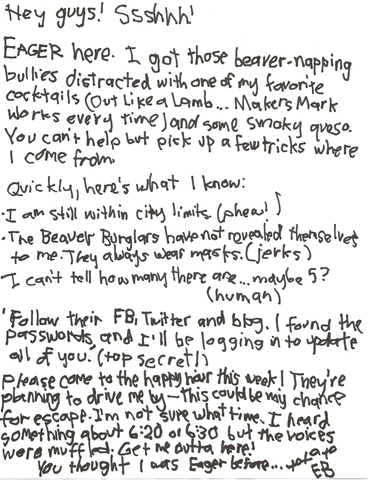 Hey guys! Ssshhh!
EAGER here. I got those beaver-napping
bullies distracted with one of my favorite
cocktails (Out Like a Lamb... Makers Mark
works every time) and some smoky queso.
You can't help but pick up a few tricks where
I come from.
Quickly, here's what I know:
·I am still within city limits (phew!)
·The Beaver Burglars have not revealed themselves
to me. They always wear masks. (jerks)
·I can't tell how many there are... maybe 5?
(human)
'Follow their FB, Twitter and blog. I found the
passwords, and I'll be logging in to update
all of you. (top secret!)
Please come to the happy hour this week! They're
planning to drive me by—this could be my chance
for escape. I'm not sure what time. I heard
something about 6:20 or 6:30 but the voices
were muffled. Get me outta here!
You thought I was Eager before...
EB